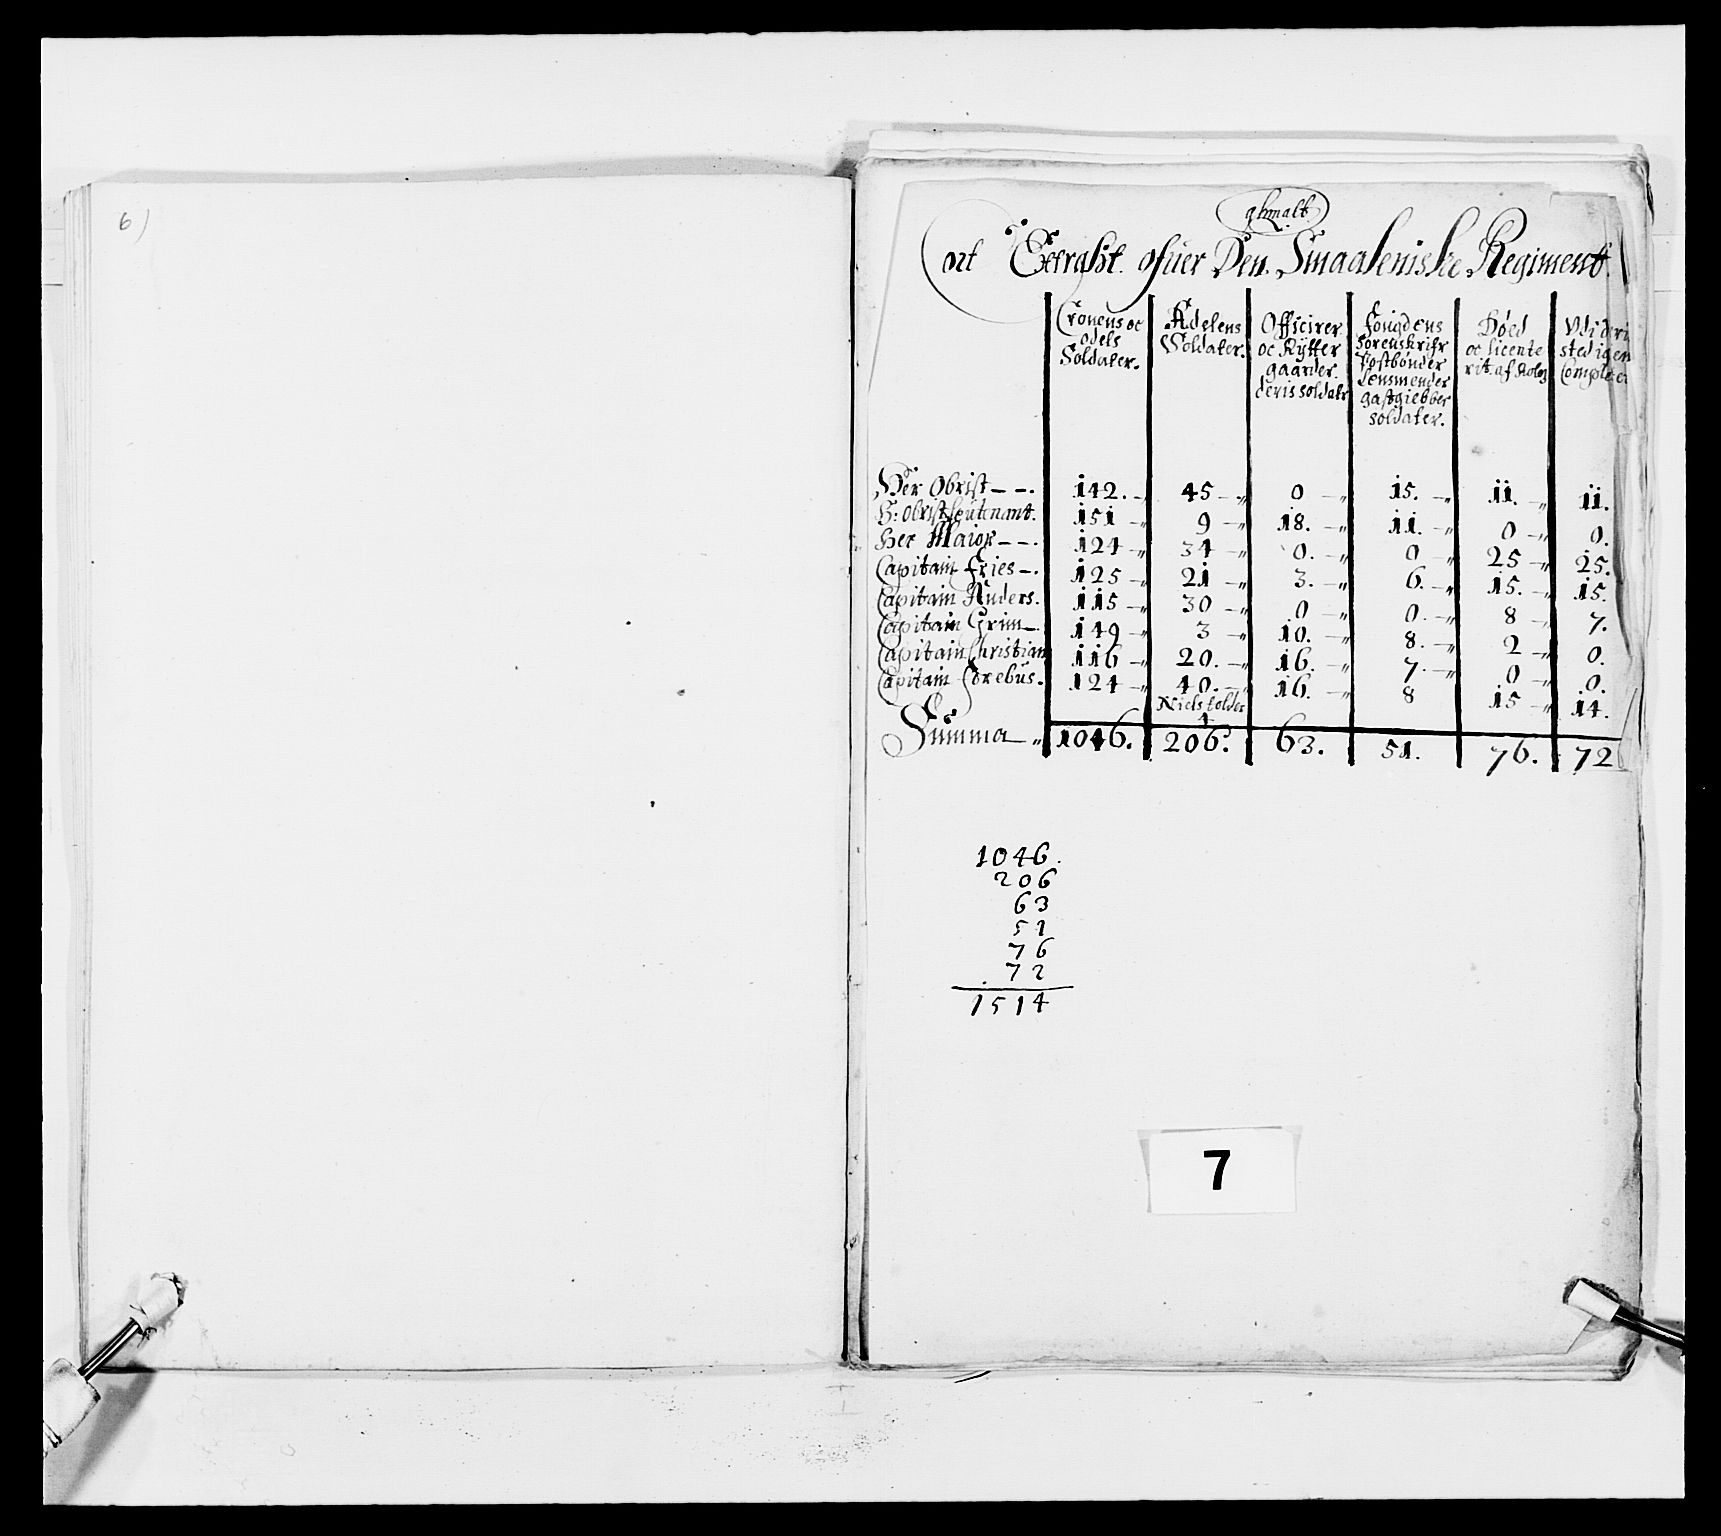 6)
ghmalt
ort Extrakt. ofuer Den. Smaaleniske Regiment
Cronens oc odels Soldater.
Adelens Soldater.
Officirer oc Rytter gaarder. deris soldatr
Fougdens Sorenskrifr Postbønder Lensmender gastgiebber soldater.
Døed oc licente rit. af
Vdi deri sted igen Complet
Her Obrist – –. 142. 45 0 15. 11. 11.
H: Obrist leutenant. 151 9 18. 11. 0 0.
Her Maior – –. 124 34 0. 0 25 25.
Capitain Fries –. 125 21 3. 6. 15. 15.
Capitain Anders. 115 30 0 0. 8 7.
Capitain Grim –. 149 3 10. 8. 2 0.
Capitain Christian 116 20. 16. 7. 0 0.
Capitain Forebus. 124 40. 16. 8 15 14.
Niels tolder
4
Summa 1046. 206. 63. 51. 76. 72
1046.
206
63
51
76
72
1514
7